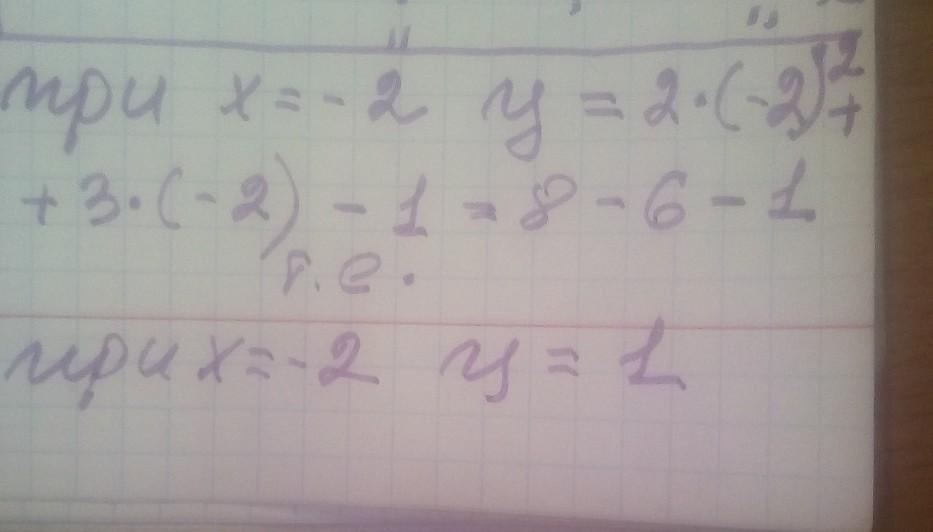 при x = -2 y = 2·(-2)²+
+ 3·(-2) - 1 = 8 - 6 - 1
т.е.
при x = -2 y = 1